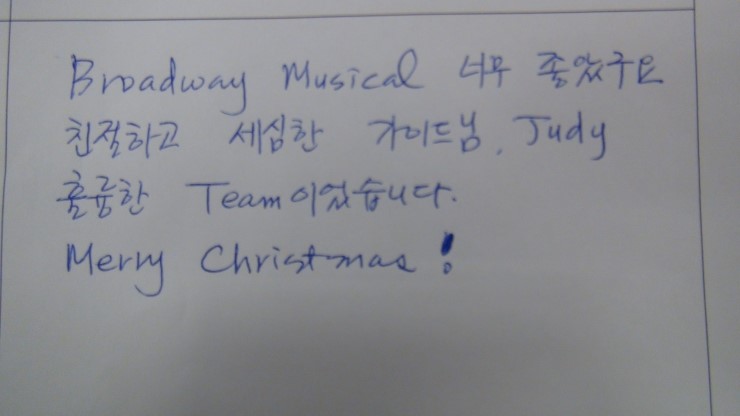 Broadway Musical 너무 좋았구요
친절하고 세심한 가이드님, Judy
훌륭한 Team이었습니다.
Merry Christmas!